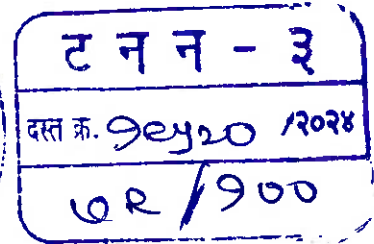 ट न न - ३
दस्त क्र. १९५२० /२०२४
७२ / १००